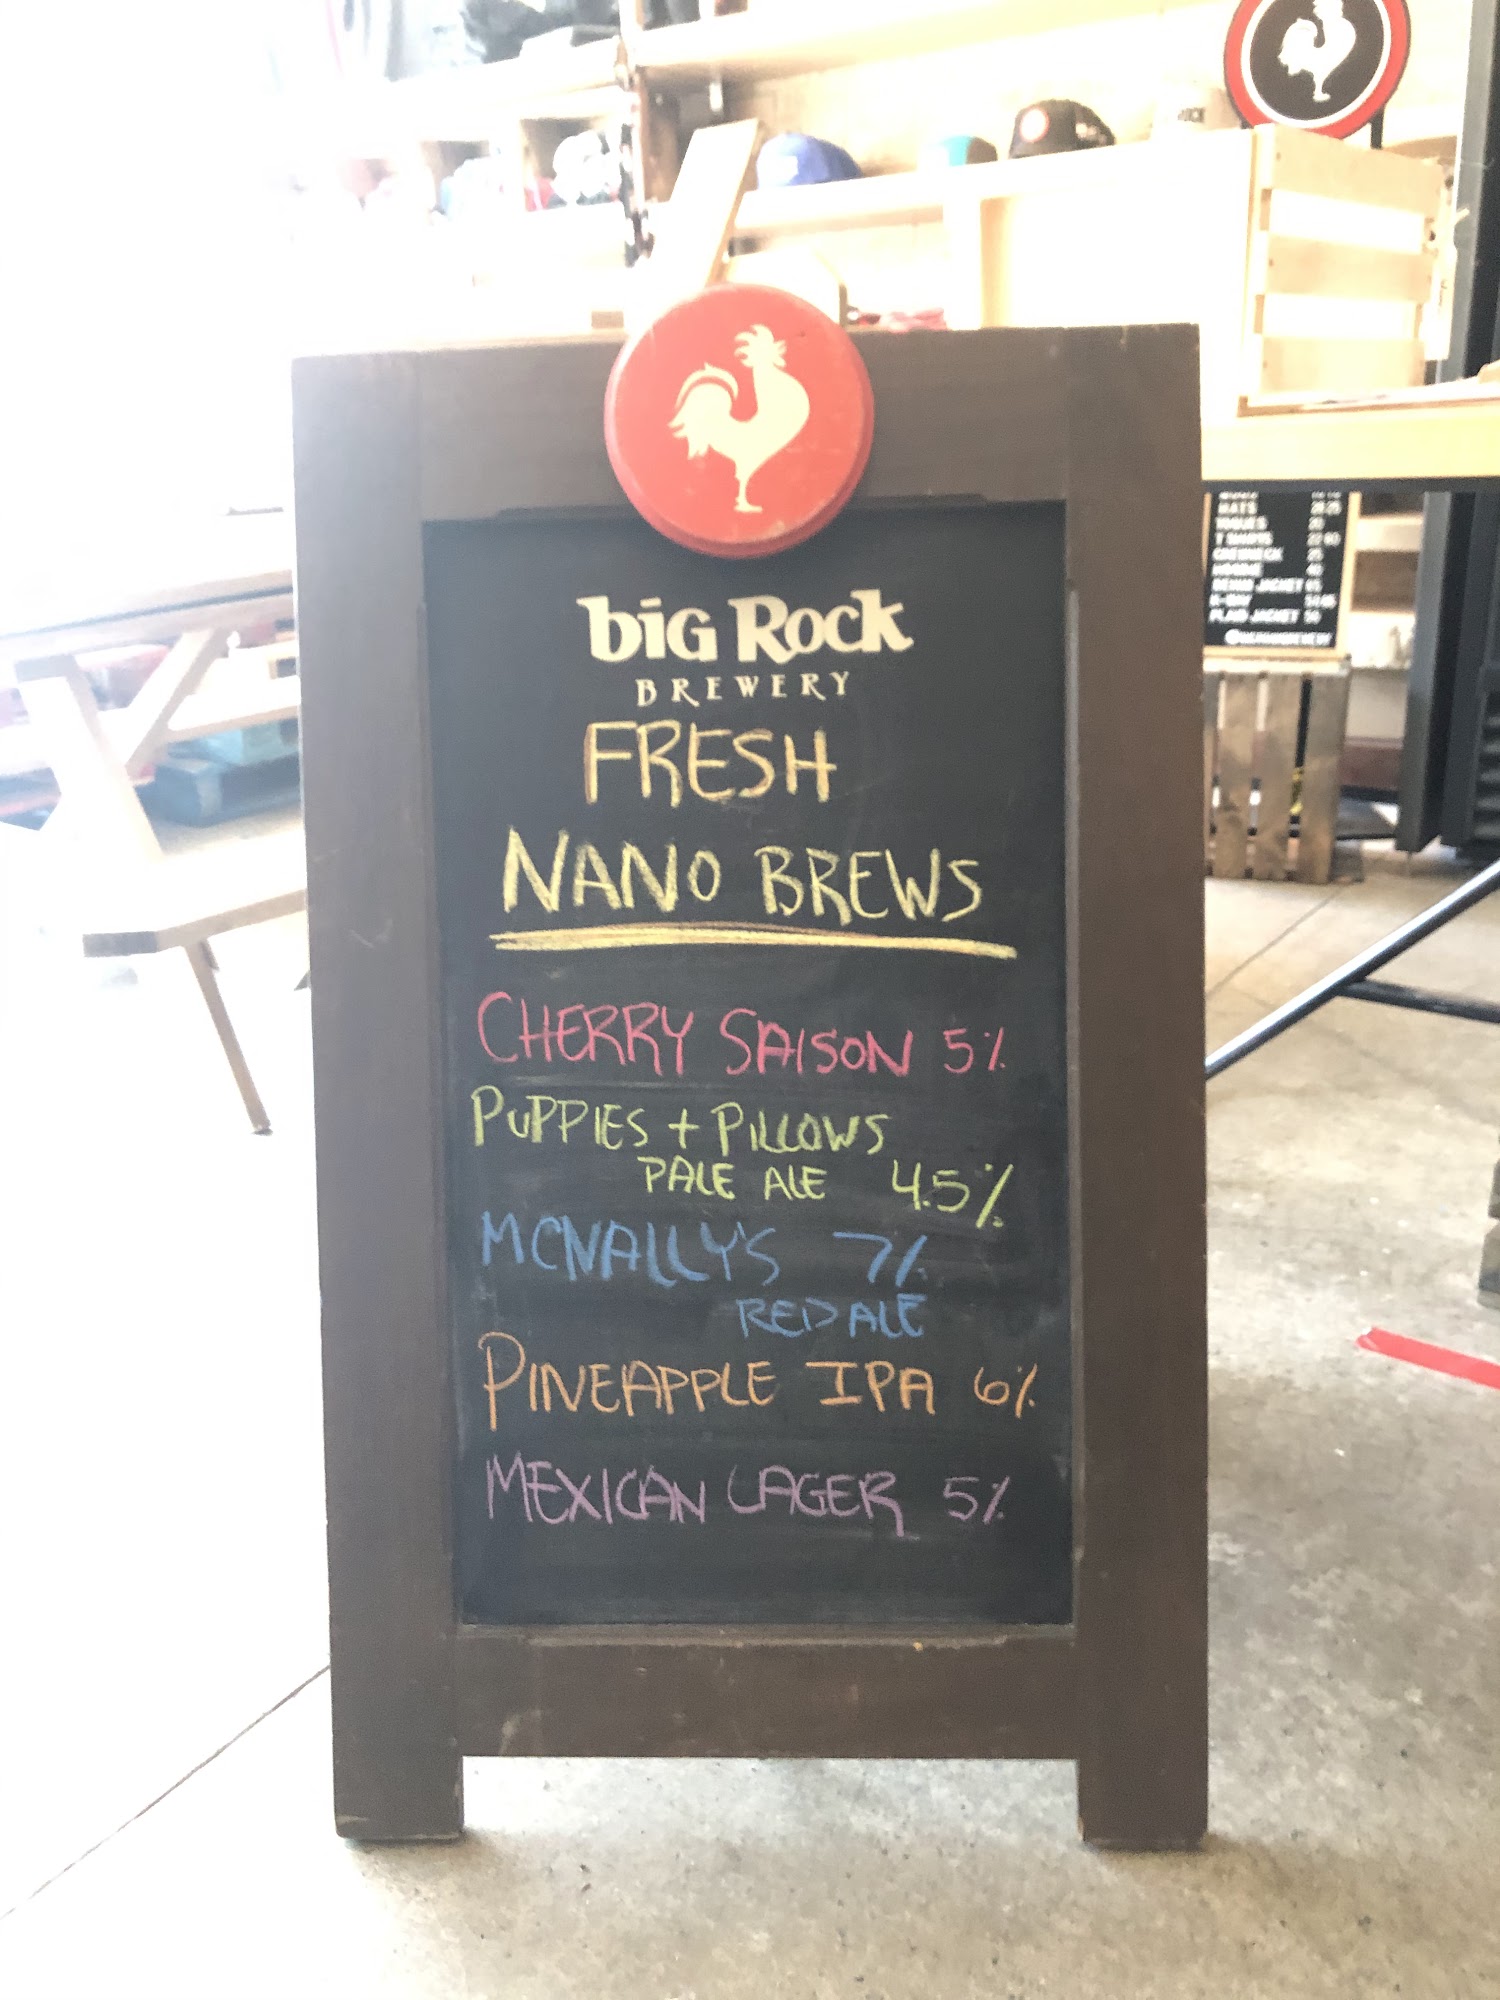 big Rock
BREWERY
FRESH
NANO BREWS
CHERRY SAISON 5%
PUPPIES + PILLOWS
PALE ALE 4.5%
MCNALLY'S 7%
RED ALE
PINEAPPLE IPA 6%
MEXICAN LAGER 5%
HATS
TOQUES 20
T SHIRTS
CREWNECK 25
PLAID JACKET 50